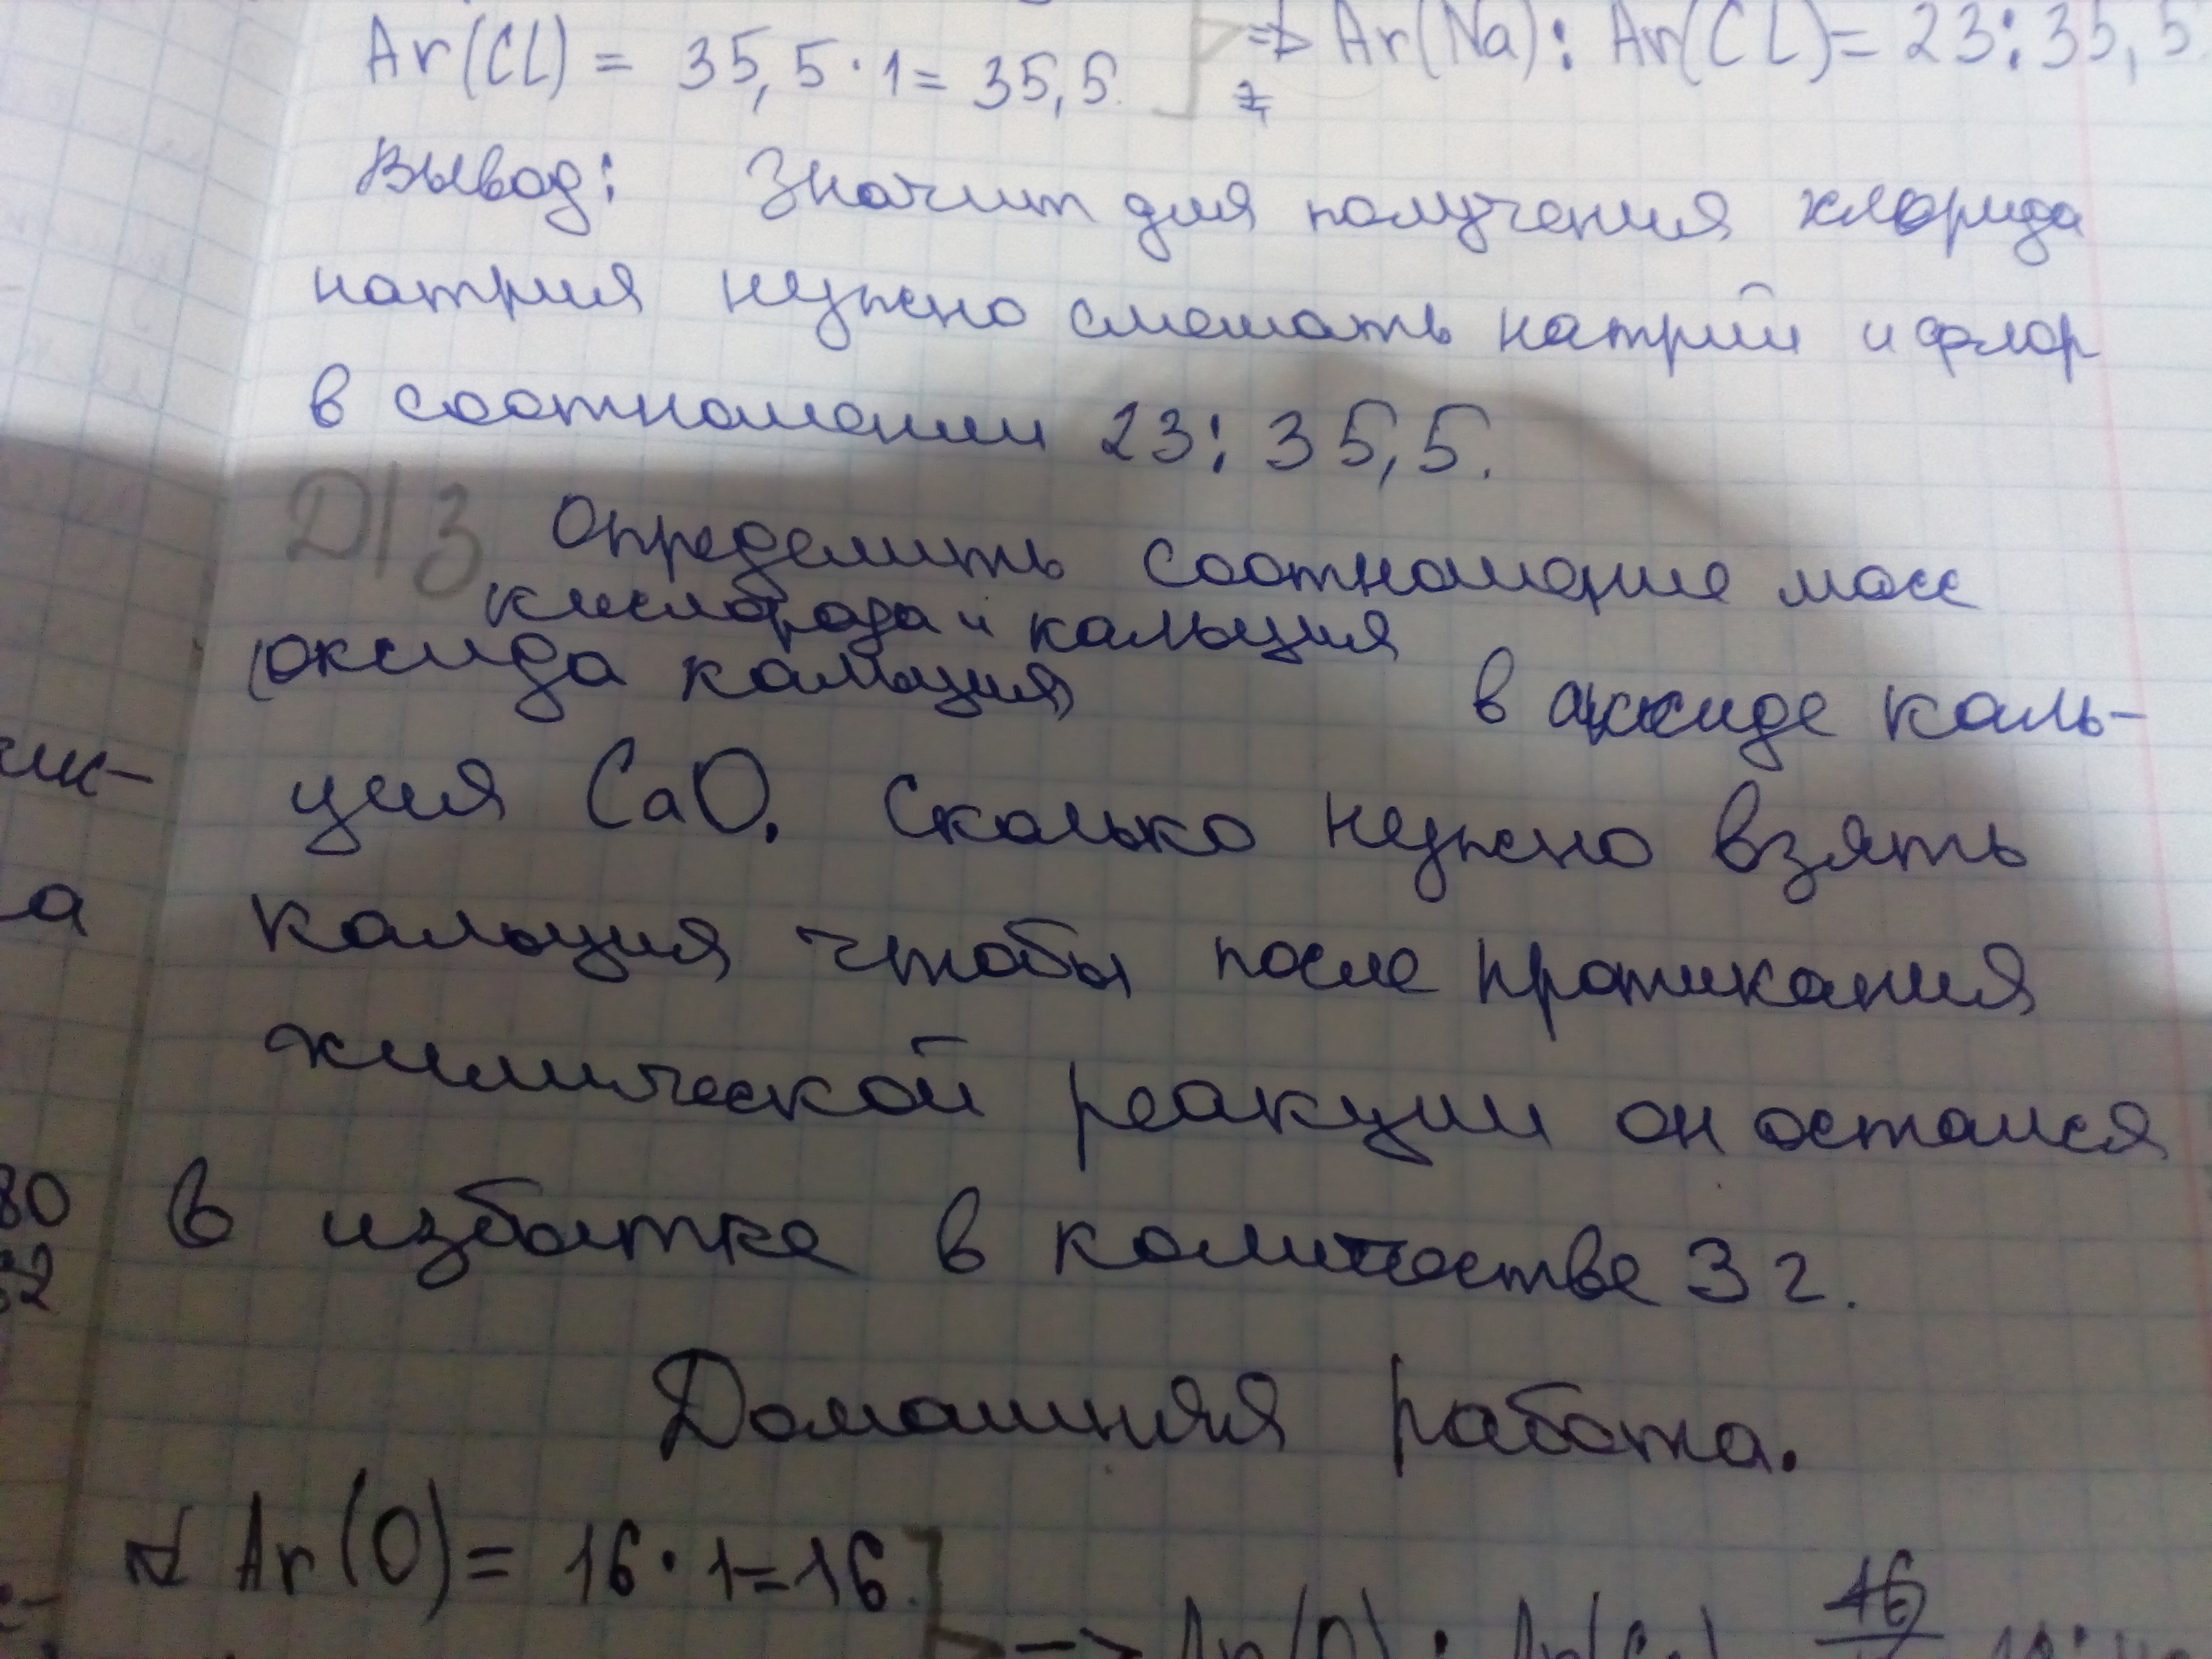 Ar(Cl) = 35,5·1 = 35,5. => Ar(Na): Ar(Cl) = 23:35,5
Вывод: Значит для получения хлорида
натрия нужно смешать натрий и флор
в соотношении 23:35,5.
D/З Определить соотношение масс
кислорода и кальция
(оксида кальция) в оксиде каль-
ция CaO. Сколько нужно взять
кальция чтобы после протикания
химической реакции он остался
в избытке в количестве 3 г.
Домашняя работа.
Ar(O) = 16·1=16.
а
80